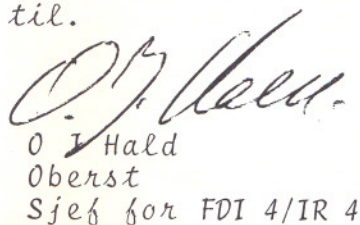 til.
O I Hald
Oberst
Sjef for FDI 4/IR 4